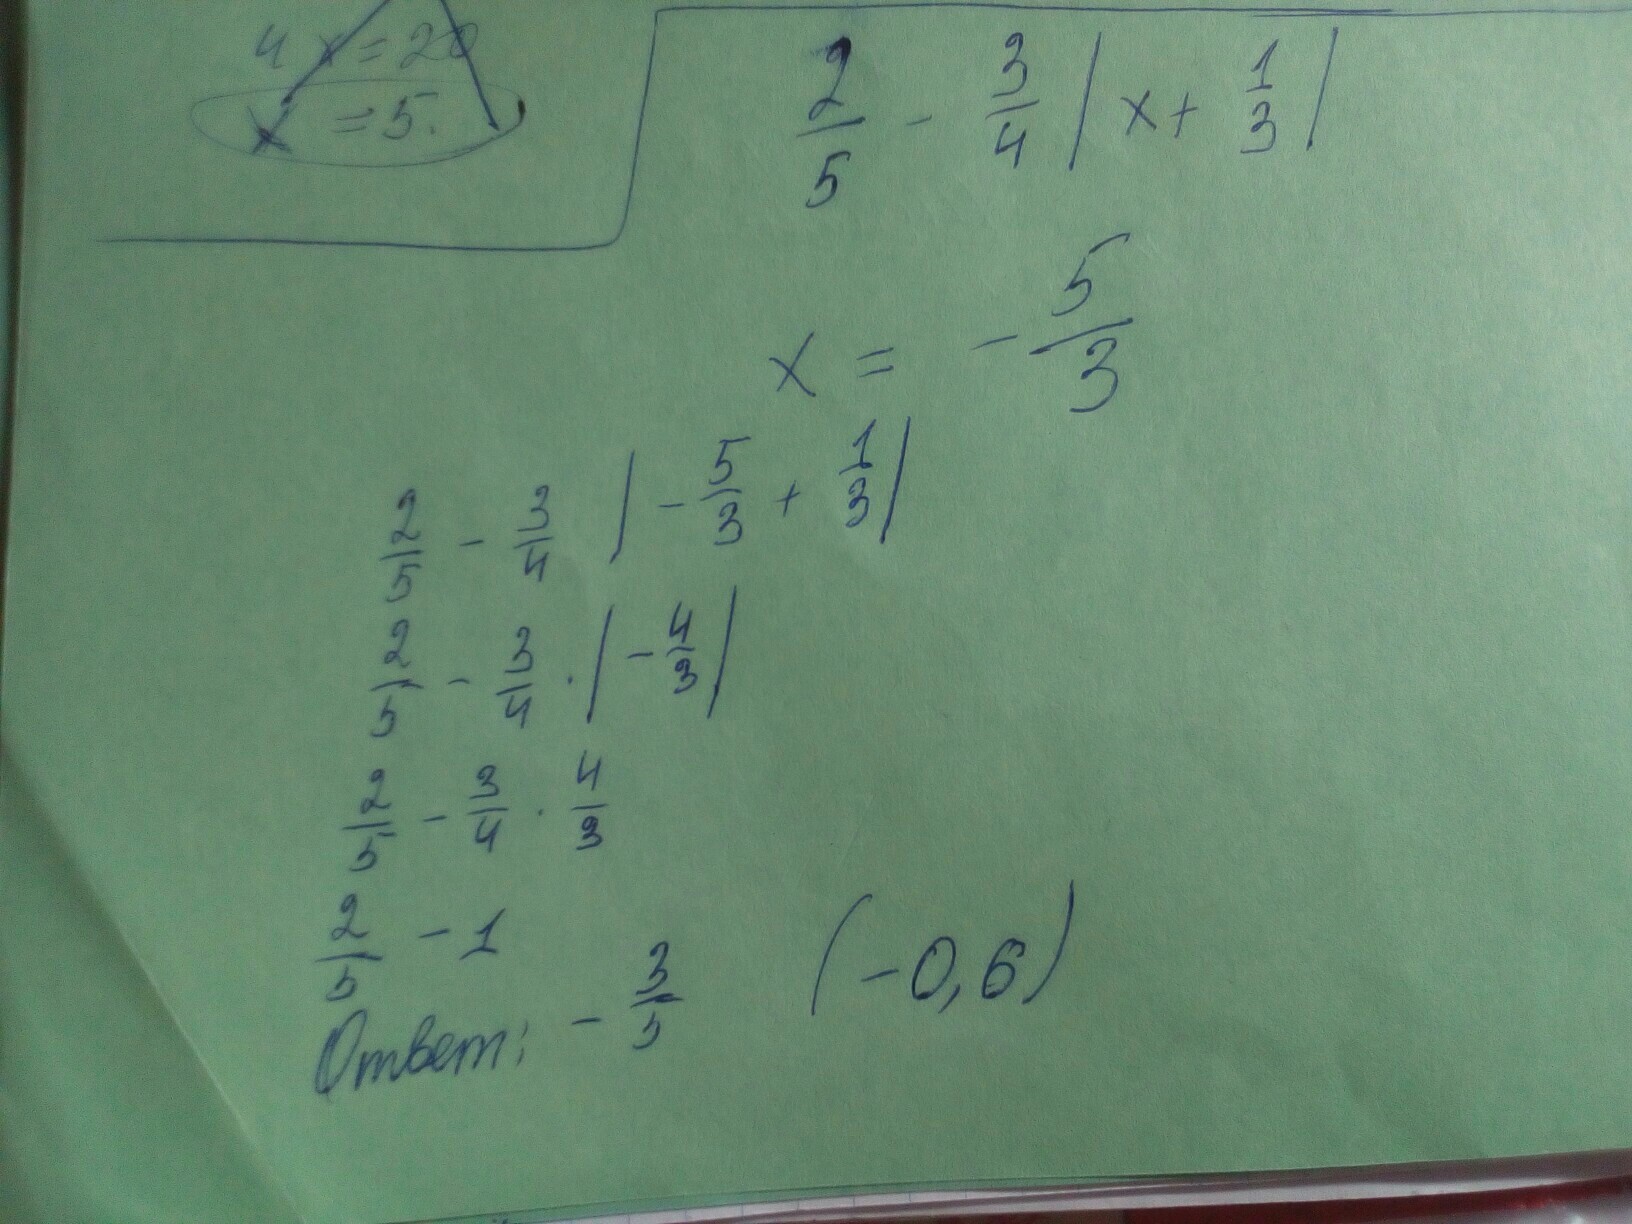 4x=20
x=5.
2/5 - 3/4 |x+ 1/3|
x = - 5/3
2/5 - 3/4 |- 5/3 + 1/3|
2/5 - 3/4 · |- 4/3|
2/5 - 3/4 · 4/3
2/5 - 1
Ответ: - 3/5 (-0,6)